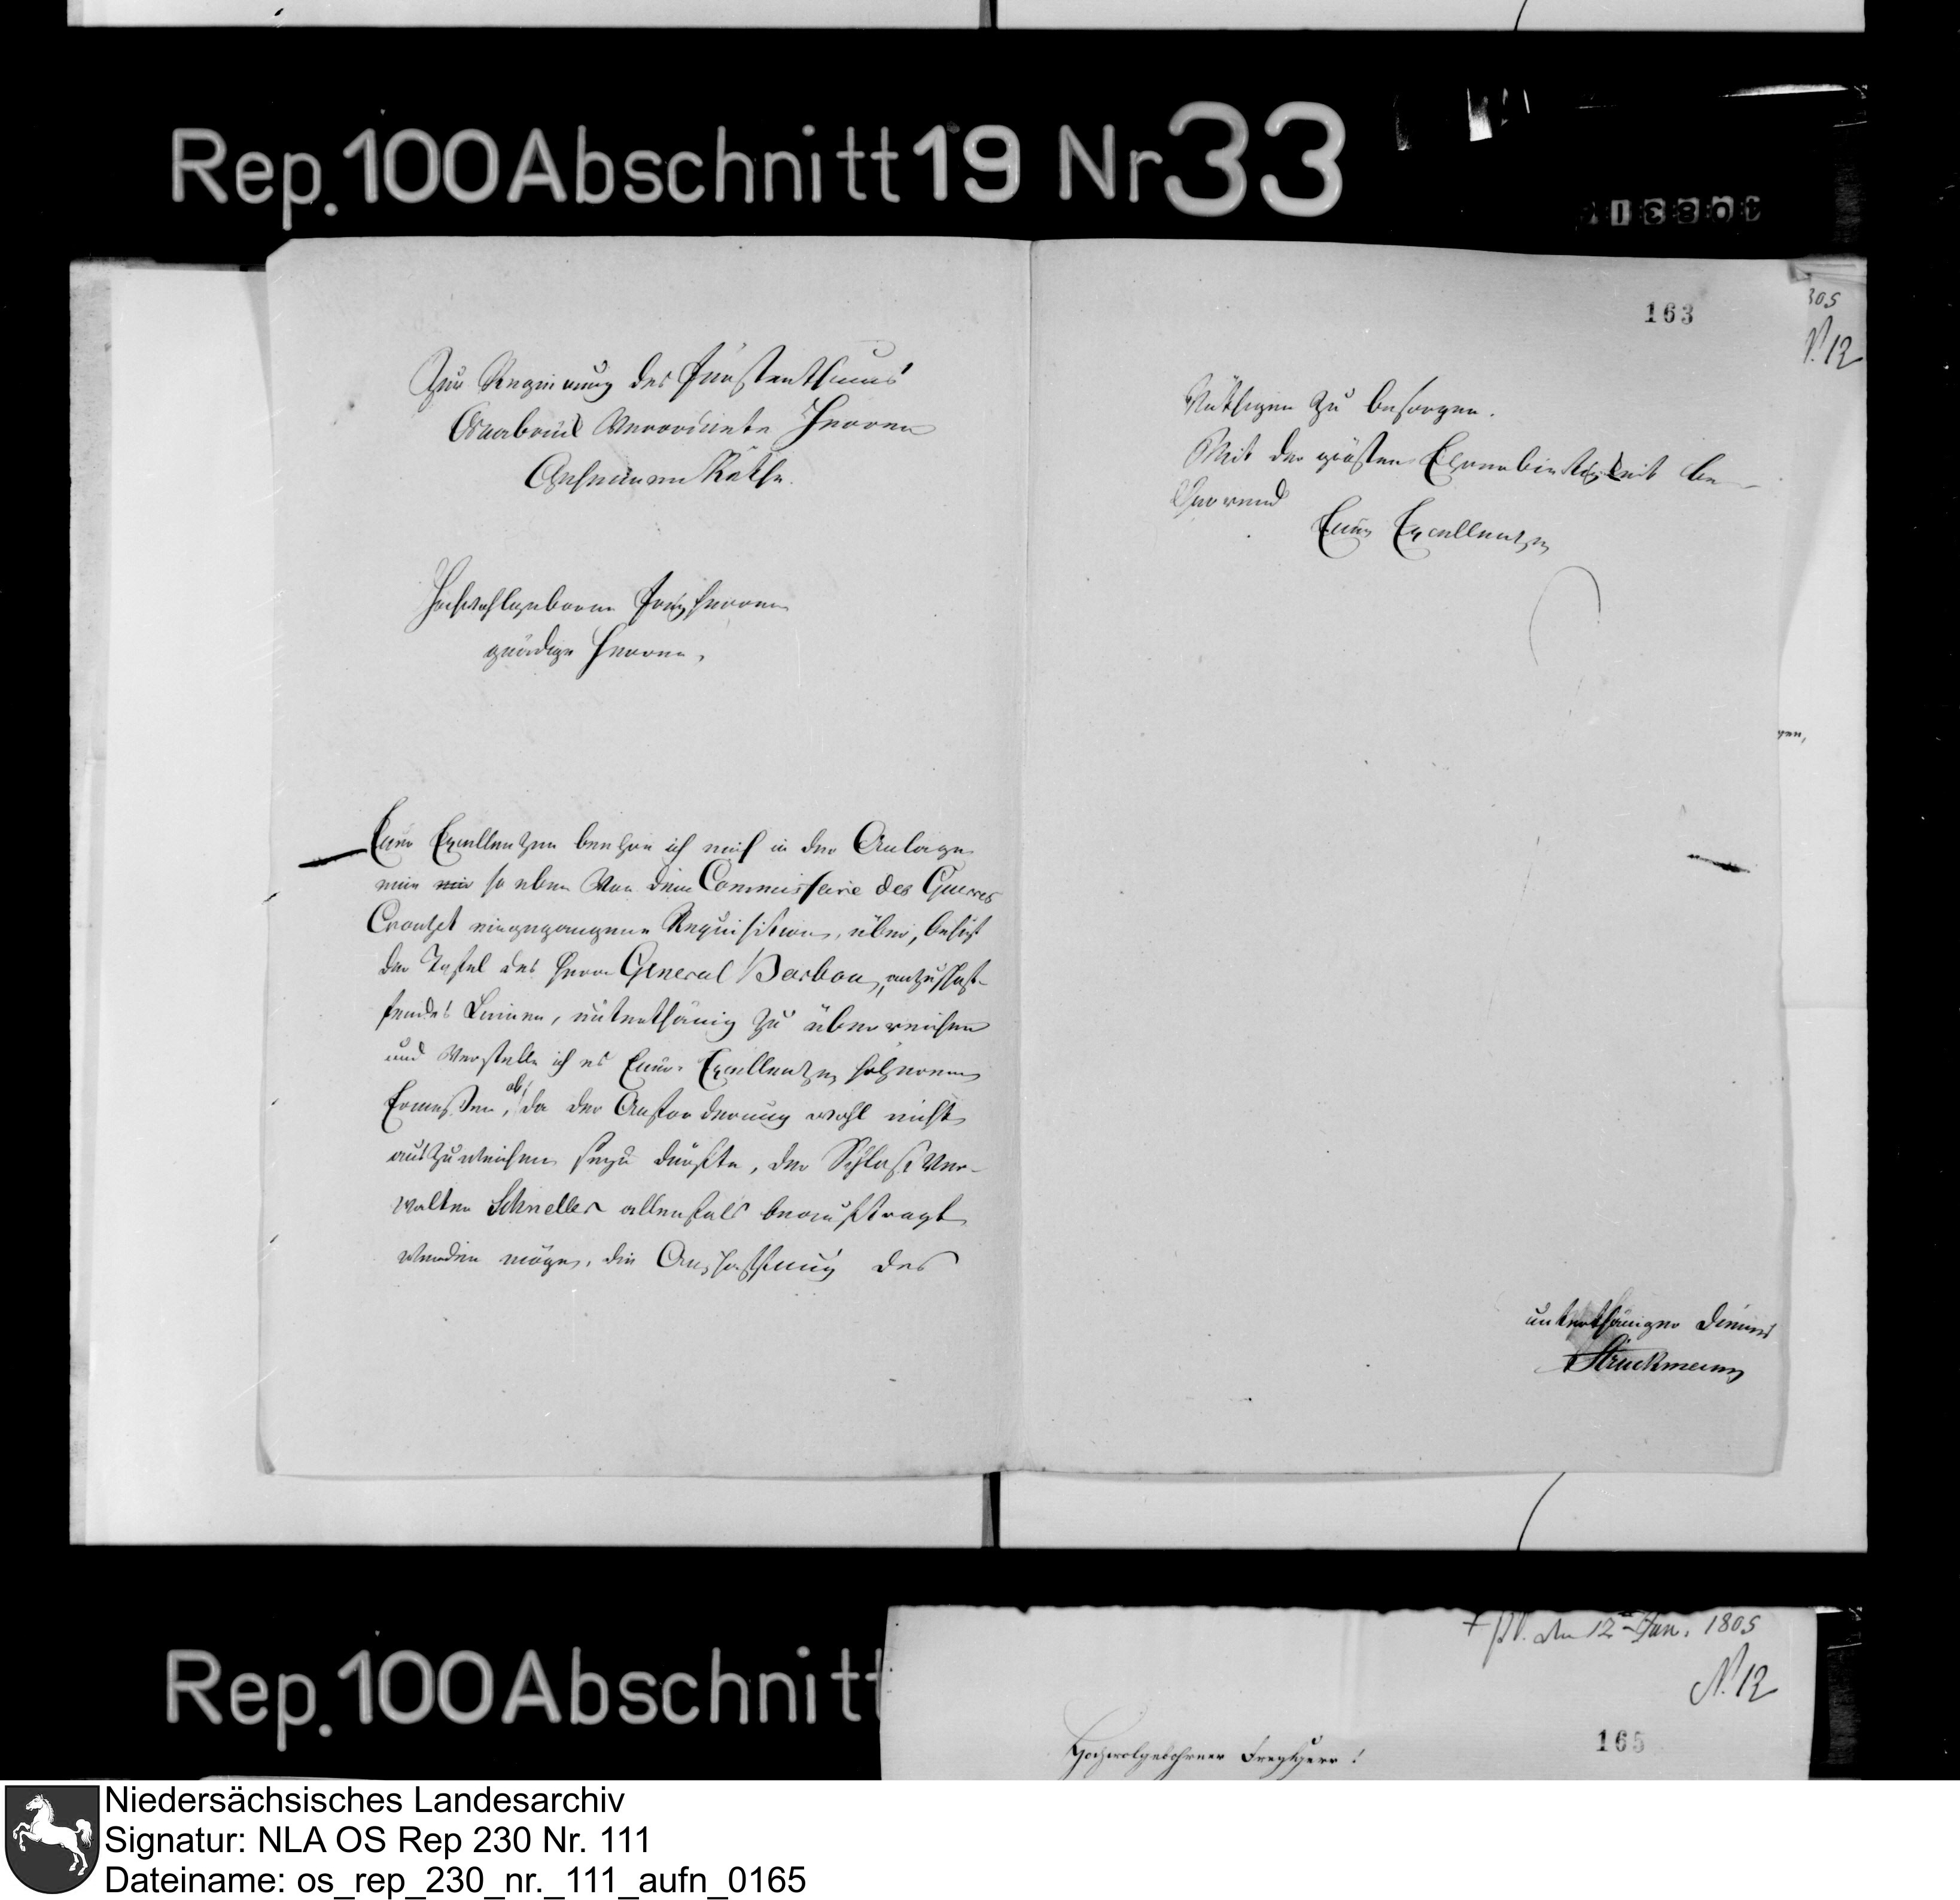 Rep. 100 Abschnitt 19 Nr 33
163
305
N. 12
Zur Regierung des Fürstenthums
Osnabrück Verordnete Herren
Geheimen Räthe.
Hochwohlgeborne Freyherren
gnädige Herren,
Eure Excellenzen beehre ich mich in der Anlage
eine mir so eben von dem Commissaire des Guerres
Crouzet eingegangene Requisition, über, behuf
der Tafel des Herrn General Barbou, anzuschaf-
fendes Linnen, unterthänig zu überreichen
und verstelle ich es Eurer Excellenzen höheren
Ermeßen, ob, da der Anforderung wohl nicht
auszuweichen seyn dürfte, der Schloß Ver-
walter Schneller allenfals beauftragt
werden möge, die Anschaffung des
Nöthigen zu besorgen.
Mit der grösten Ehrerbietigkeit be-
harrend
Eurer Excellenzen
gen,
unterthäniger Diener
Struckmann
Rep. 100 Abschnitt
den 12ten Jan. 1805
N. 12
165
Hochwolgebohrner Freyherr!
Niedersächsisches Landesarchiv
Signatur: NLA OS Rep 230 Nr. 111
Dateiname: os_rep_230_nr._111_aufn_0165